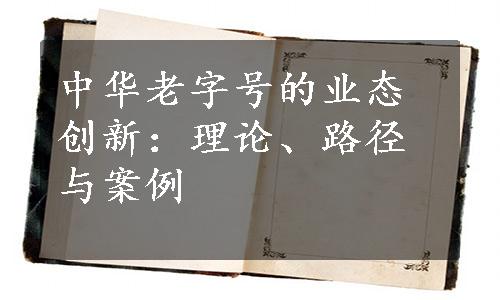 中华老字号的业态
创新：理论、路径
与案例